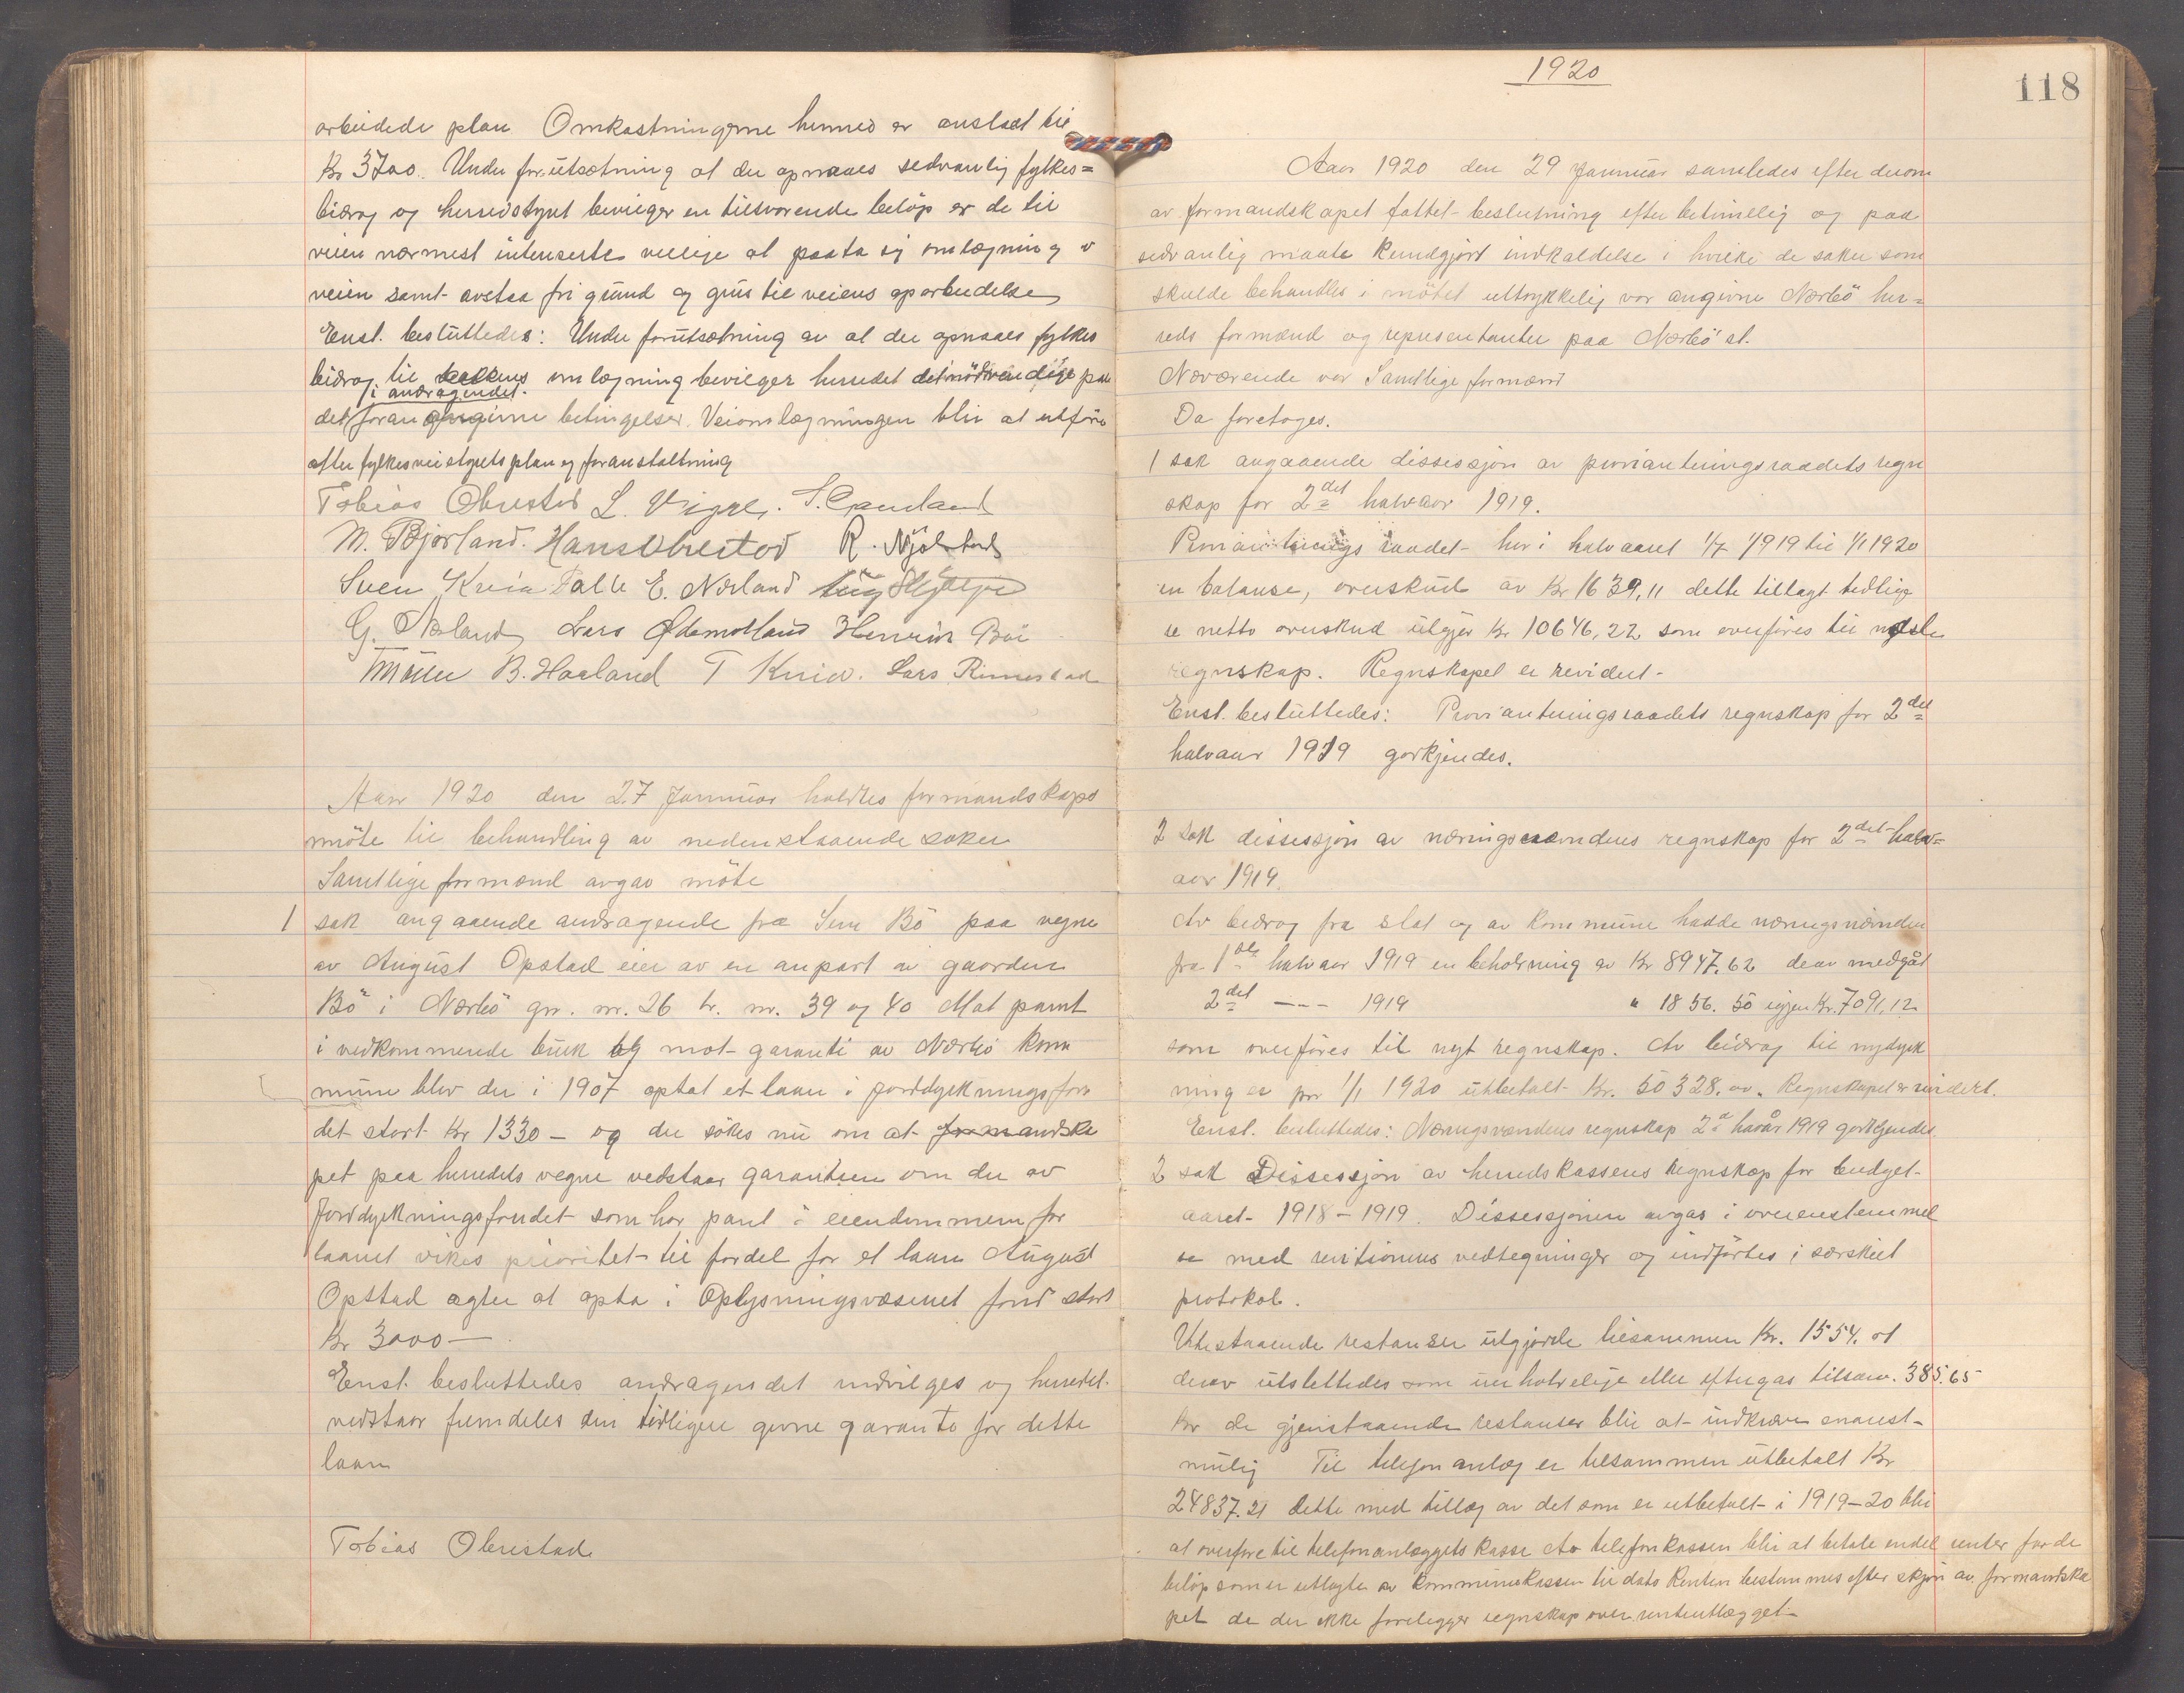 arbeidede plan Omkostningerne herved er anslaat til
Kr 3700. Under forutsætning at der opnaaes sedvanlig fylkes=
bidrag og herredstyret bevilger en tilsvarende beløp er de til
veien nærmest interesserte villige at paata sig omlægning av
veien samt avstaa fri grund og grus til veiens oparbeidelse
Enst. besluttedes: Under forutsætning av at der opnaaes fylkes
bidrag til omlægning bevilger herredet det nödvendige paa
i andragendet.
det foran angivne betingelser. Veiomlægningen blir at utföre
efter fylkesveistyrets plan og foranstaltning
Tobias Obrestad L. Vigre. S. Gandland
M. Bjorland. Hans Obrestad R. Njolstad
Sven Kvia Falle E. Nærland
G. Næland Lars Ødemotland Henrik Böe
B. Haaland T Kvia. Lars Rimestad
Aar 1920 den 27 Januar holdtes formandskaps
möte til behandling av nedenstaaende saker
Samtlige formænd avgav möte
1 sak angaaende andragende fra Sven Bö paa vegne
av August Opstad eier av en anpart av gaarden
Bö i Nærbö gn. nr. 26 br. nr. 39 og 40 Mot pant
i vedkommende bruk og mot garanti av Nærbö kom
mune blev der i 1907 optat et laan i jorddyrkningsfon
det stort Kr 1330 – og der sökes nu om at formandska
pet paa herredets vegne vedstaar garantien om der av
Jorddyrkningsfondet som har pant i eiendommen for
laanet vikes prioritet til fordel for et laan August
Opstad agter at opta i Oplysningsvæsenet fond stort
Kr 3000 —
Enst. besluttedes andragendet indvilges og herredet
vedstaar fremdeles den tidligere givne garanti for dette
laan
Tobias Obrestad
1920
118
Aar 1920 den 29 Januar samledes efter derom
av formandskapet fattet beslutning efter betimelig og paa
sedvanlig maate kundgjort indkaldelse i hvilke de saker som
skulde behandles i mötet uttrykkelig var angivne Nærbö her=
reds formænd og representanter paa Nærbö st.
Nærværende var Samtlige formænd
Da foretoges.
1 sak angaaende dissesjon av provianteringsraadets regn
skap for 2det halvaar 1919.
Provianteringsraadet har i halvaaret 1/7 1919 til 1/1 1920
en balanse, overskud av Kr 1639,11 dette tillagt tidlige
re netto overskud utgjør Kr 10646,22 som overføres til næste
regnskap. Regnskapet er revidert.
Enst. besluttedes: Provianteringsraadets regnskap for 2det
halvaar 1919 godkjendes.
2 sak dissesjon av næringsnævndens regnskap for 2det halv=
aar 1919.
Av bidrag fra stat og av kommune hadde næringsnævnden
fra 1ste halvaar 1919 en beholdning av Kr 8947.62 derav medgåt
2det –– – 1919 " 1856. 50 igjen Kr. 7091,12
som overføres til nyt regnskap. Av bidrag til nydyrk
ning er pr 1/1 1920 utbetalt Kr. 50328.00. Regnskapet er revidert.
Enst. besluttedes: Næringsnævndens regnskap 2d havår 1919 godkjendes
3 sak Dissesjon av herredskassens regnskap for budget
aaret 1918–1919. Dissesjonen avgas i overenstemmel
se med revitionens vedtegninger og indførtes i særskilt
protokol.
Utestaaende restanser utgjorde tilsammen Kr. 1554. 01
derav utslettedes som uerholdelige eller eftergas tilsam. 385.65
Kr de gjenstaaende restanser blir at indkræve snarest
mulig Til telefonanlæg er tilsammen utbetalt Kr
24837.21 dette med tillæg av det som er utbetalt i 1919–20 blir
at overføre til telefonanlæggets kasse Av telefonkassen blir at betale endel renter for de
beløp som er utlagte av kommunekassen til dato Renten bestemmes efter skjøn av formandska
pet da der ikke foreligger regnskap over renteutlægget